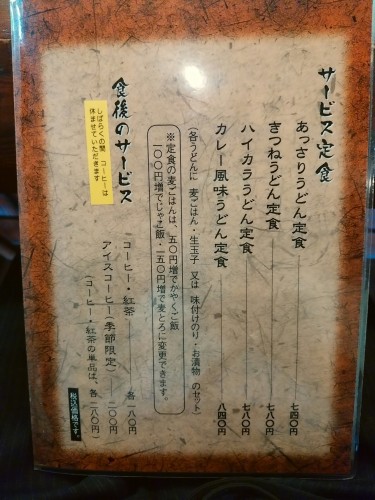 サービス定食
あっさりうどん定食 七四〇円
きつねうどん定食 七八〇円
ハイカラうどん定食 七八〇円
カレー風味うどん定食 八四〇円
（各うどんに 麦ごはん・生玉子 又は 味付けのり・お漬物 のセット）
※定食の麦ごはんは、五〇円増でかやくご飯
一〇〇円増でじゃこ飯・一五〇円増で麦とろに変更できます。
食後のサービス
しばらくの間 コーヒーは
休ませていただきます
コーヒー・紅茶 各一八〇円
アイスコーヒー（季節限定） 二〇〇円
（コーヒー・紅茶の単品は、各二八〇円）
税込価格です。